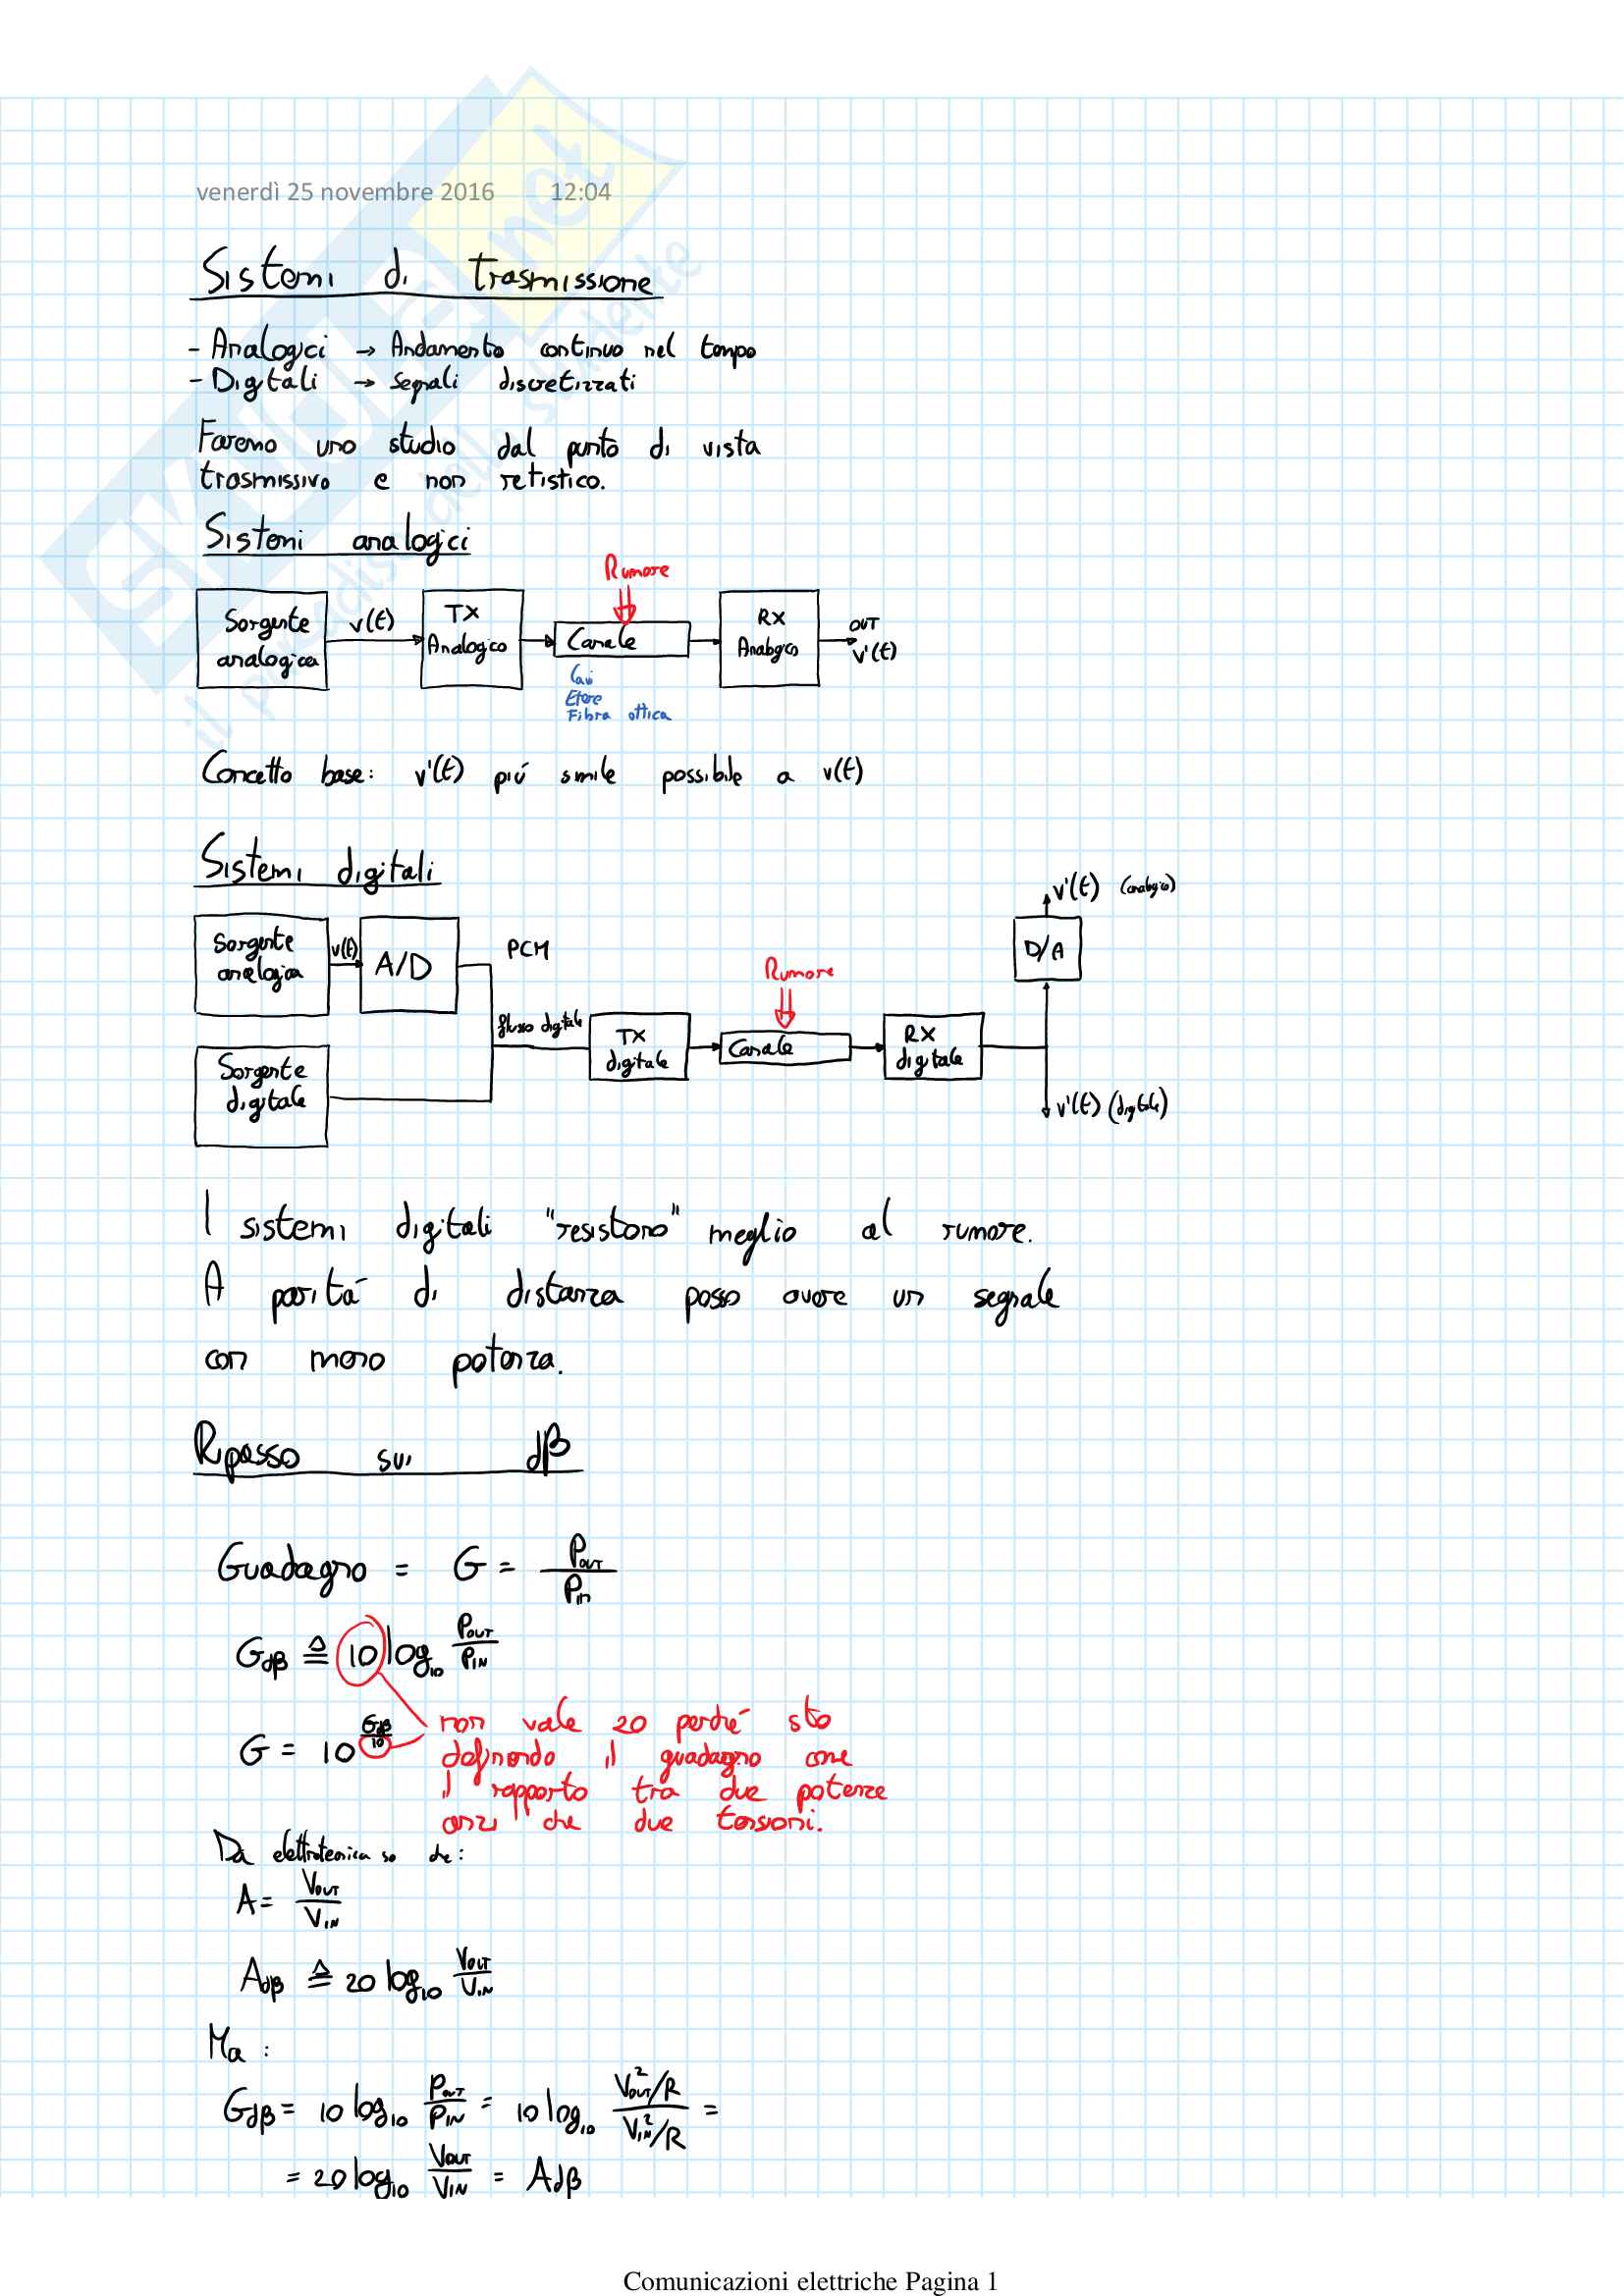 venerdì 25 novembre 2016 12:04
Sistemi di trasmissione
- Analogici → Andamento continuo nel tempo
- Digitali → Segnali discretizzati
Faremo uno studio dal punto di vista
trasmissivo e non retistico.
Sistemi analogici
Rumore
Sorgente analogica
v(t)
TX Analogico
Canale
RX Analogico
OUT
v'(t)
Cavi
Etere
Fibra ottica
Concetto base: v'(t) piú simile possibile a v(t)
Sistemi digitali
v'(t) (analogico)
Sorgente analogica
v(t)
A/D
PCM
D/A
Rumore
flusso digitale
TX digitale
Canale
RX digitale
Sorgente digitale
v'(t) (digitale)
I sistemi digitali "resistono" meglio al rumore.
A paritá di distanza posso avere un segnale
con meno potenza.
Ripasso sui dB
Guadagno = G = Pout/Pin
GdB ≜ 10 log10 POUT/PIN
G = 10^(GdB/10)
non vale 20 perché sto
definendo il guadagno come
il rapporto tra due potenze
anzi che due tensioni.
Da elettrotecnica so che:
A = VOUT/VIN
AdB ≜ 20 log10 VOUT/VIN
Ma :
GdB = 10 log10 POUT/PIN = 10 log10 (VOUT²/R)/(VIN²/R) =
= 20 log10 VOUT/VIN = AdB
Comunicazioni elettriche Pagina 1
SKUOLA.net
il paradiso dello studente